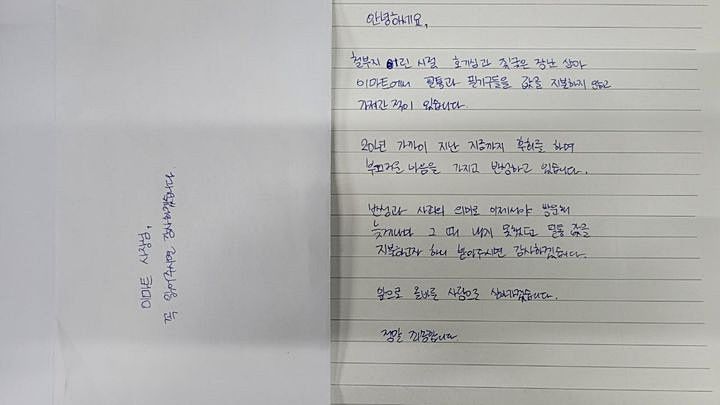 이마트 사장님,
꼭 읽어주시면 감사하겠습니다.
안녕하세요,
철부지 어린 시절 호기심과 짖궂은 장난 삼아
이마트에서 필통과 필기구들을 값을 지불하지 않고
가져간 적이 있습니다.
20년 가까이 지난 지금까지 후회를 하며
부끄러운 마음을 가지고 반성하고 있습니다.
반성과 사죄의 의미로 이제서야 방문해
늦게나마 그 때 내지 못했던 물품 값을
지불하고자 하니 받아주시면 감사하겠습니다.
앞으로 올바른 사람으로 살아가겠습니다.
정말 죄송합니다